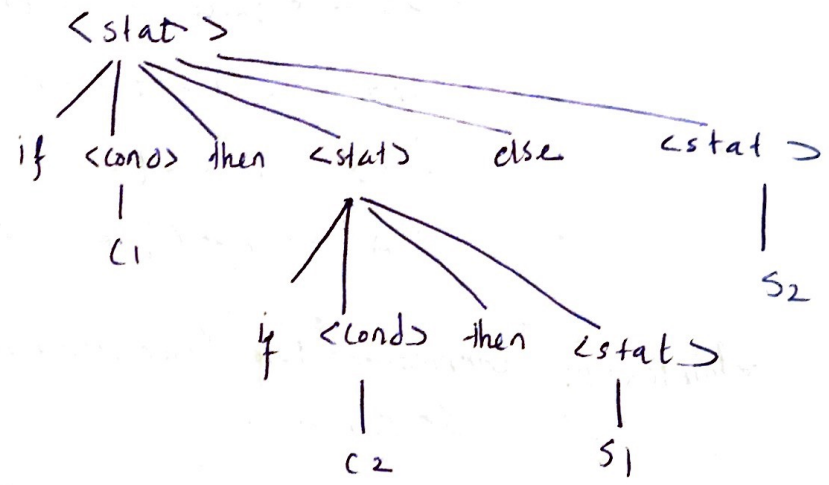 <stat>
if <cond> then <stat> else <stat>
C1
S2
if <cond> then <stat>
C2 S1